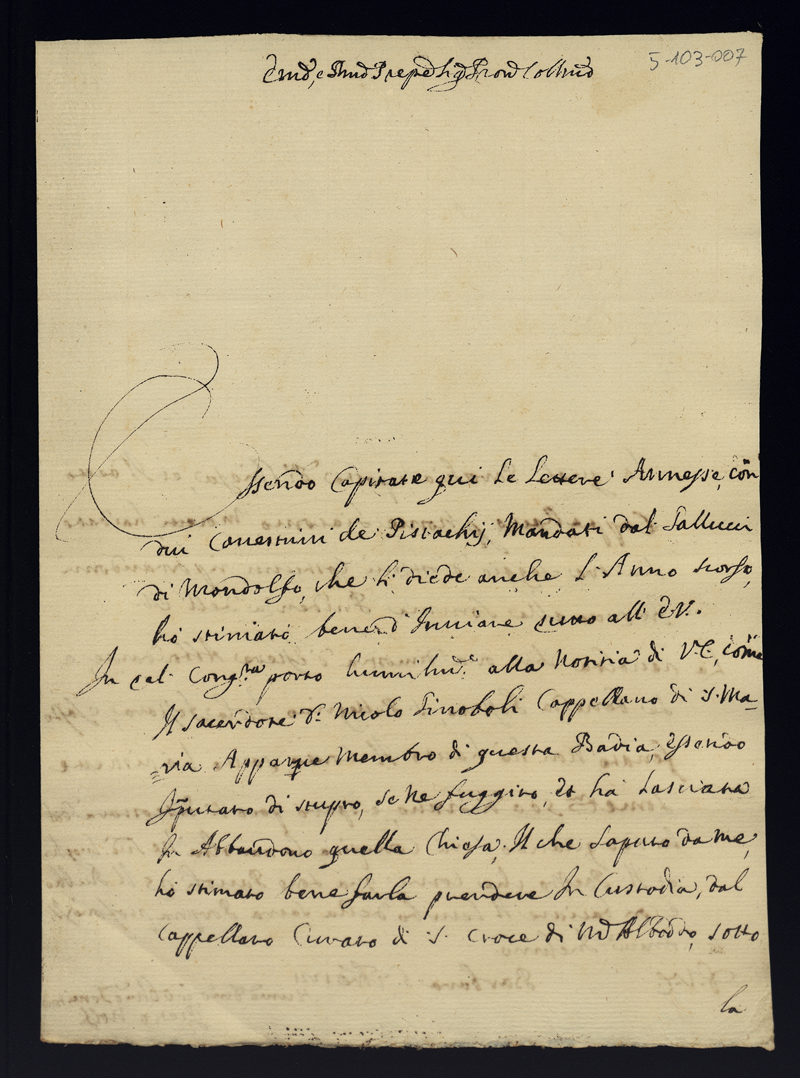 5-103-007
Emo, e Rmo Prepe Sig Pron Colmo
Essendo Capitate qui le lettere Annesse, con
dui Canestrini de Pistachij, Mandati dal Gallucci
di Mondolfo, che li diede anche l'Anno scorso,
hò stimato bene d'Inviare tutto all'E.V.
In tal Cong.ra porto humilm.e alla Notitia di V.E., come
Il Sacerdote D. Nicolo Ginoboli Cappellano di S. Ma-
=ria Apparue Membro di questa Badia, Essendo
Jputato di stupro, se Ne fuggito, et hà Lasciata
In Abbandono quella Chiesa, Il che saputo da me,
hò stimato bene farla prendere In Custodia, dal
Cappellano Curato di S. Croce di Mo Abbado, sotto
la